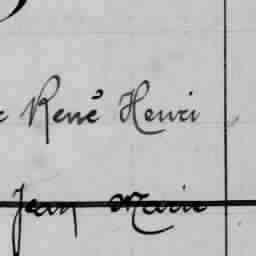 René Henri
Jean Marie